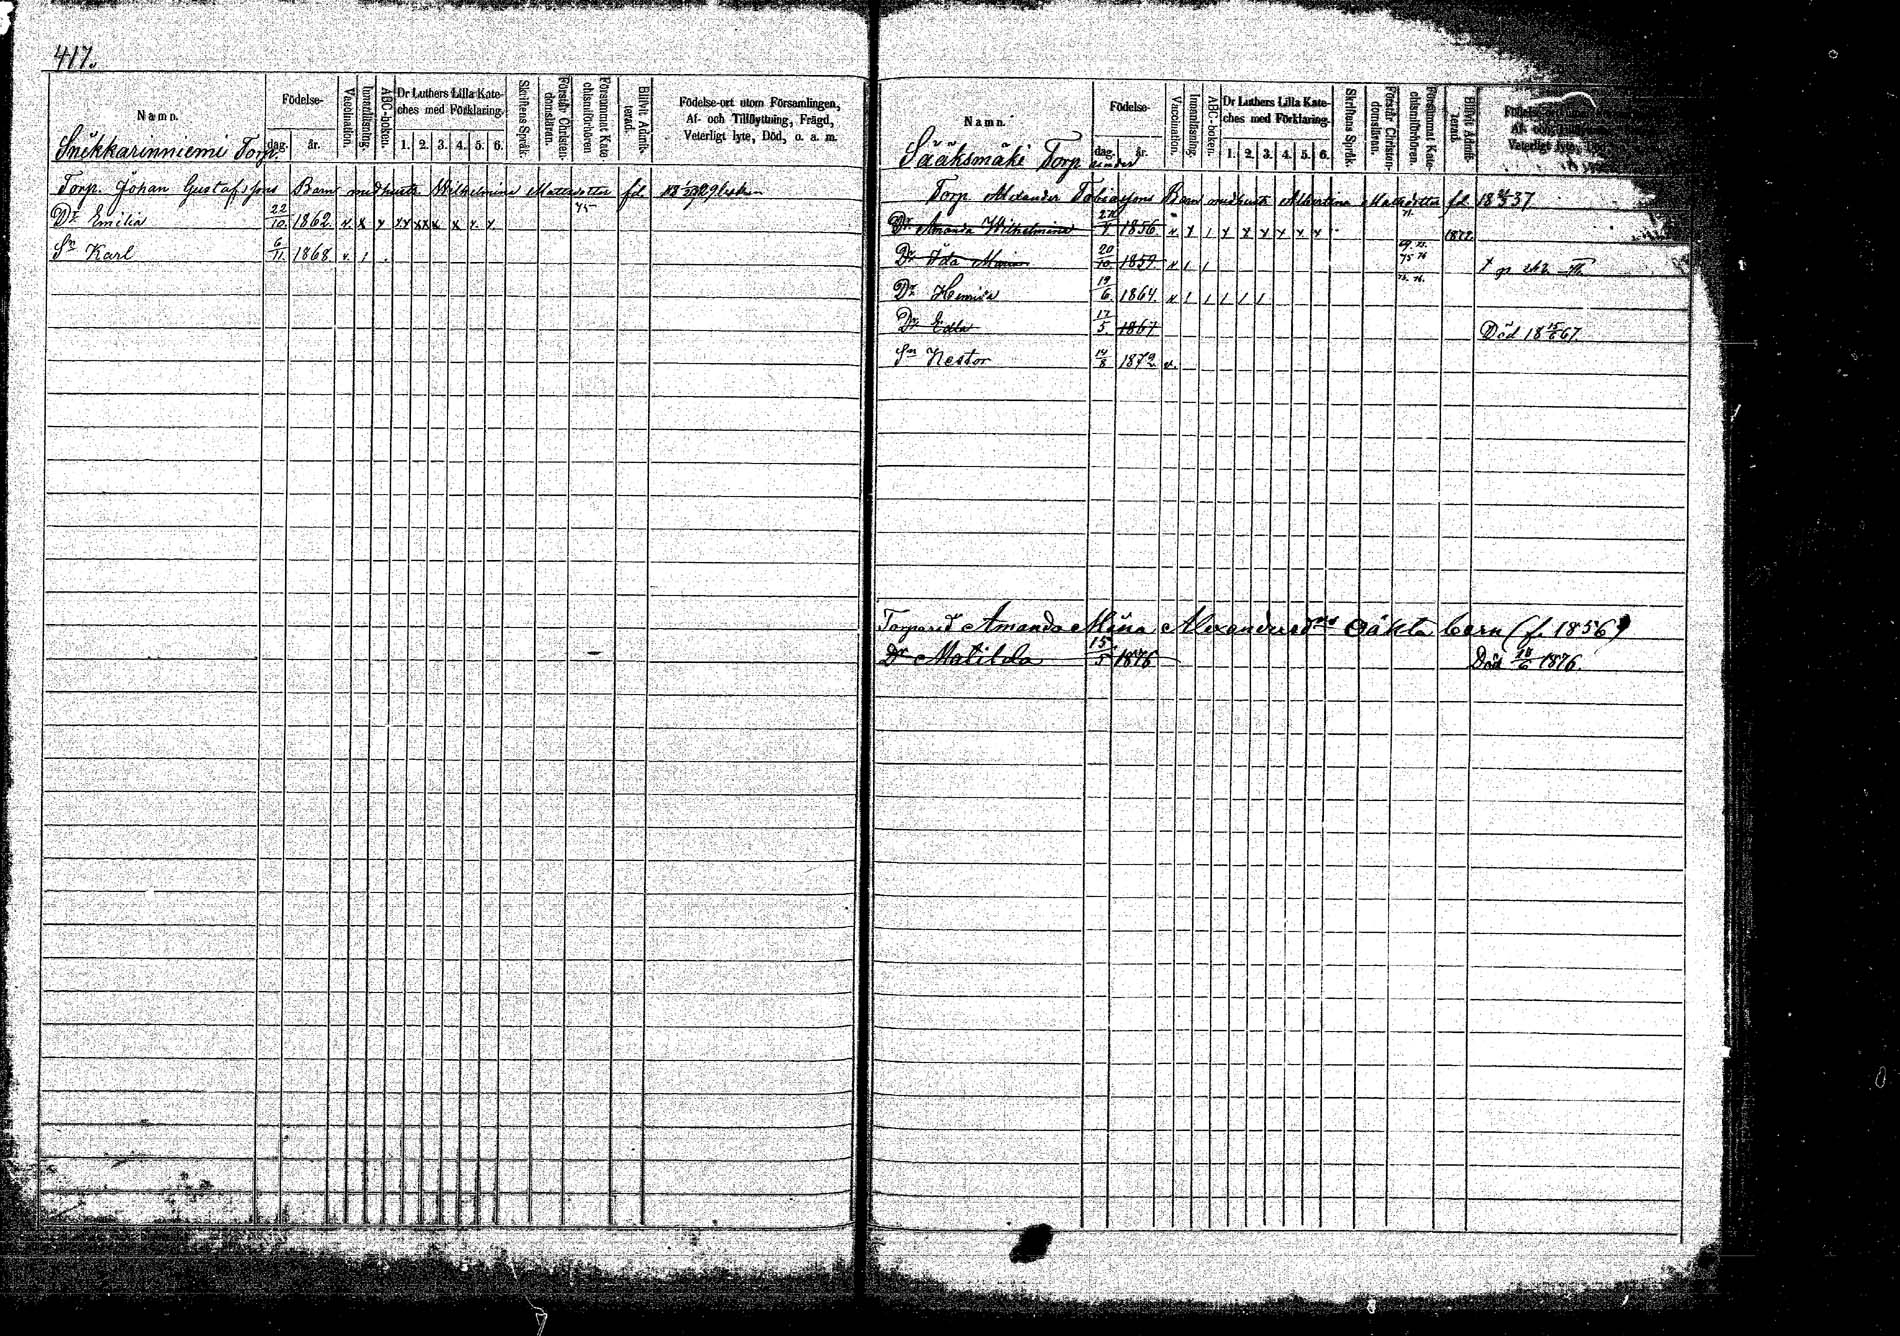 417.
Namn. Födelse- dag. år. Vaccination. Innanläsning. ABC-boken. Dr Luthers Lilla Kateches med Förklaring. 1. 2. 3. 4. 5. 6. Skriftens Språk. Förstår Christendomsläran. Försummat Katechismiförhören Blifvit Admitterad. Födelse-ort utom Församlingen, Af- och Tillflyttning, Frägd, Veterligt lyte, Död, o. a. m.
Snikkarinniemi Torp.
Torp. Johan Gustafssons Barn med hustr. Wilhelmina Mattsdotter fd.
75
Dr Emilia 22/10. 1862. v. x x xx xx x. x x. x.
Sn Karl 6/11 1868 v. 1 .
Namn. Födelse- dag. år. Vaccination. Innanläsning. ABC-boken. Dr Luthers Lilla Kateches med Förklaring. 1. 2. 3. 4. 5. 6. Skriftens Språk. Förstår Christendomsläran. Försummat Katechismiförhören. Blifvit Admitterad. Af- och Veterligt lyte, Död
Sääksmäki Torp
Torp. Alexander Tobiassons Barn med hustr. Albertina Mattsdotter fd.
Dr Amanda Wilhelmina 1856 v. x 1 x x x x x x 1872.
Dr Ida Maria 20/10. 1859. v 1 1 75 76
Dr Hemina 19/6. 1864. v 1 1 1 1 1
Dr Edla 17/5. 1867 Död 18 15/6 67.
Sn Nestor 14/8 1872 v.
Amanda Mina Alexandersdrs oäkta barn (f. 1856)
Dr Matilda 15/5 1876 Död 1876.